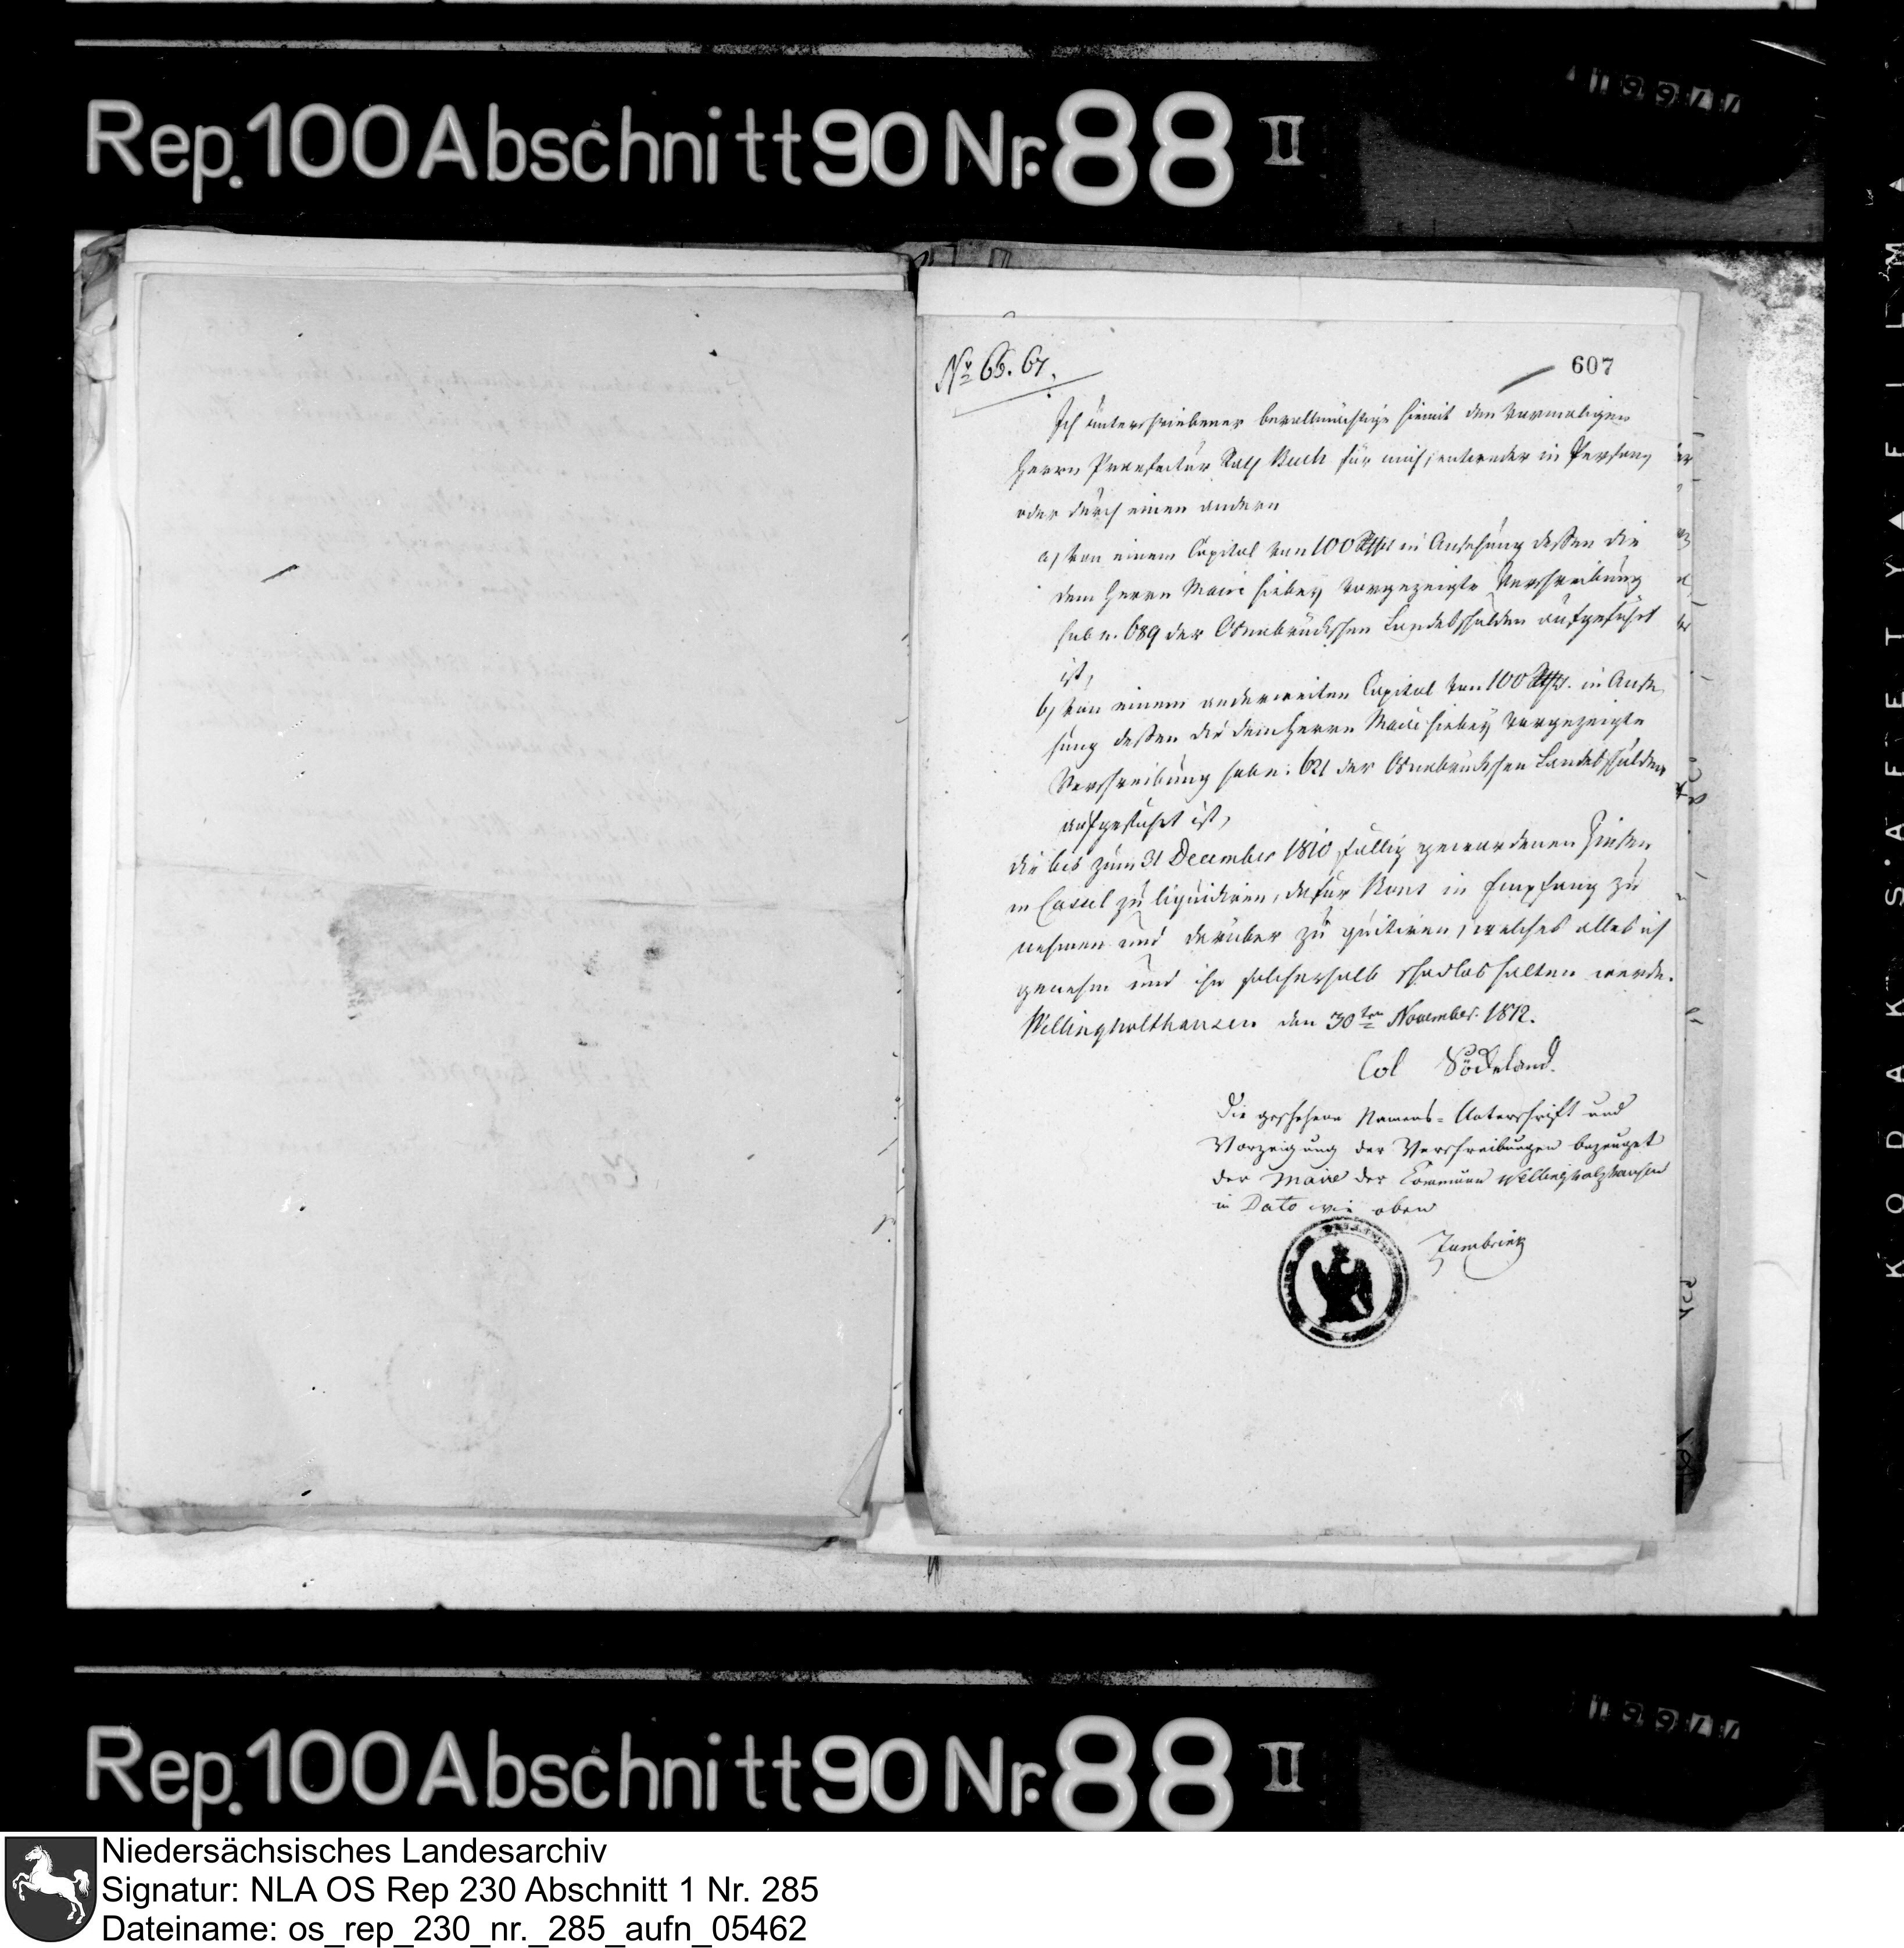 Rep. 100 Abschnitt 90 Nr. 88 II
No 66. 67.
607
Ich unterschriebener bevollmächtige hiemit den vormaligen
Herrn Praefectur Rath Buch für mich, entweder in Person,
oder durch einen andern
a) von einem Capital von 100 Rthlr in Ansehung deßen die
dem Herrn Maire hiebey vorgezeigte Verschreibung
sub n. 689 der Osnabrückschen Landesschulden aufgeführt
ist,
b) von einem anderweiten Capital von 100 Rthlr. in Anse
hung deßen die dem Herrn Maire hiebey vorgezeigte
Verschreibung sub n. 621 der Osnabrückschen Landesschulden
aufgeführt ist,
die bis zum 31 December 1810 fällig gewordenen Zinsen
in Cassel zu liquidiren, dafür Bons in Empfang zu
nehmen und darüber zu quitiren, welches alles ich
genehm und ihn solcherhalb schadlos halten werde.
Wellingholthausen den 30ten November 1812.
Col
Die geschehene Namens-Unterschrift und
Vorzeigung der Verschreibungen bezeuget
der Maire der Commune Wellingholzhausen
in Dato wie oben
Zumbrink
KODAK SAFETY
Rep. 100 Abschnitt 90 Nr. 88 II
Niedersächsisches Landesarchiv
Signatur: NLA OS Rep 230 Abschnitt 1 Nr. 285
Dateiname: os_rep_230_nr._285_aufn_05462